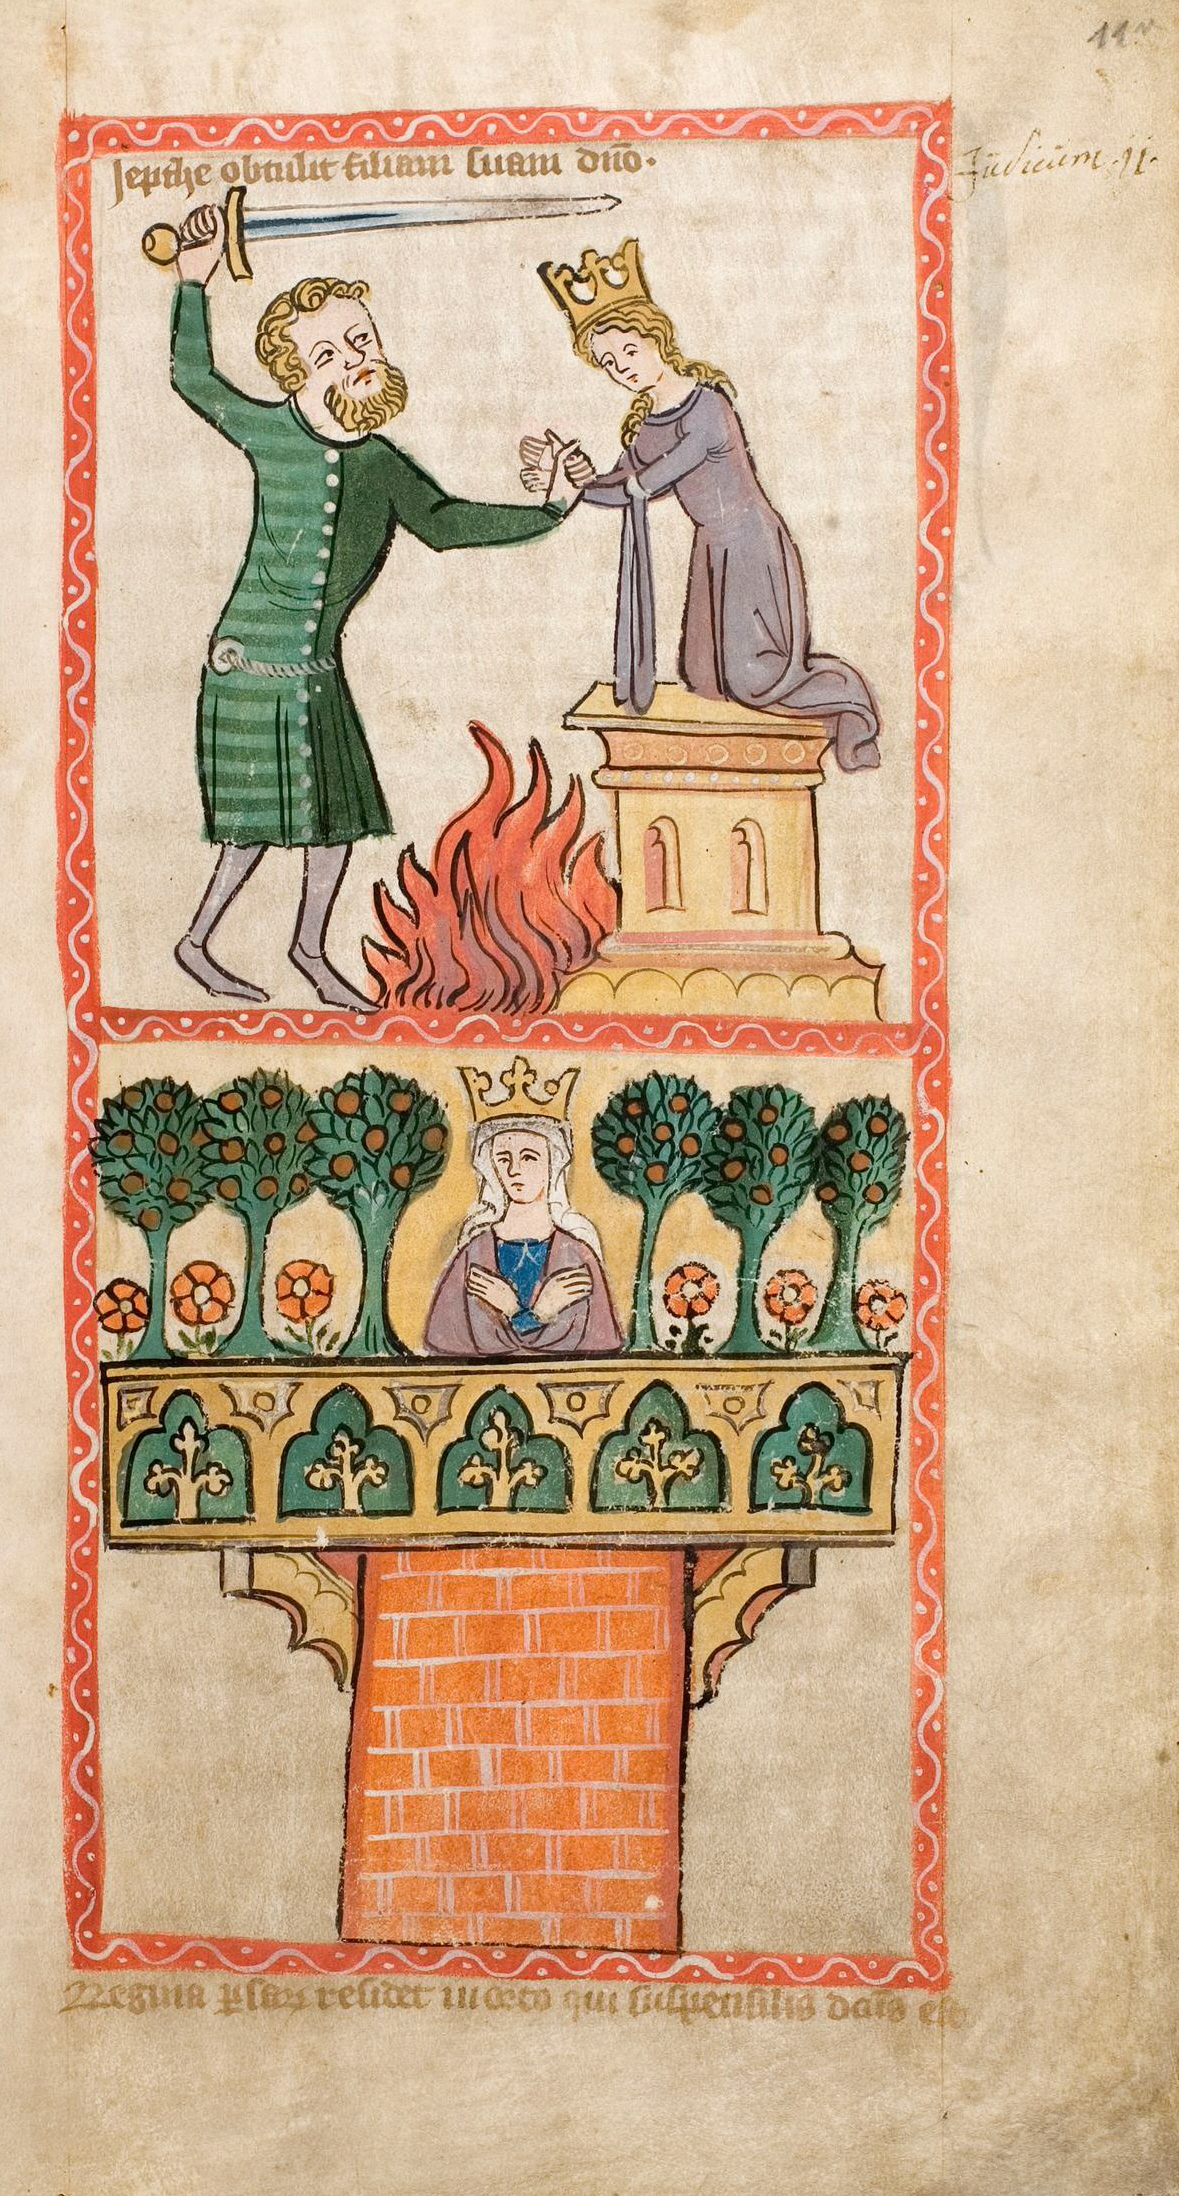 11v
Jepthe obtulit filiam suam dn̄o.
Judicum .11.
Regina ꝑsaꝝ residet in orto qui suspensilis dc̄us est